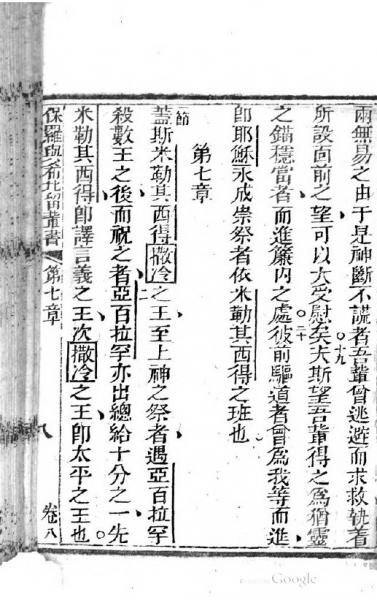 兩無易之由于是神斷不謊者吾輩曾逃避而求救執着
所設面前之望可以大受慰矣夫斯望吾輩得之為猶靈
十九
之錨穩當者而進簾內之處彼前驅道者曾為我等而進
二十
即耶穌永成崇祭者依米勒其西得之班也
第七章
一節
蓋斯米勒其西得撒冷之王至上神之祭者遇亞百拉罕
殺數王之後而祝之者亞百拉罕亦出總給十分之一先
二
米勒其西得即譯言義之王次撒冷之王即太平之王也
保羅與希比留輩書 第七章 八 卷八
Google